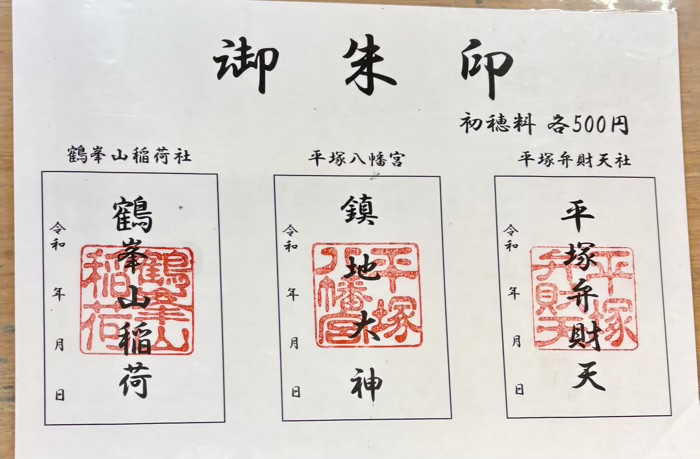 御朱印
初穂料 各500円
鶴峯山稲荷社
鶴峯山稲荷
令和 年 月 日
鶴峯山稲荷
平塚八幡宮
鎮地大神
令和 年 月 日
平塚八幡宮
平塚弁財天社
平塚弁財天
令和 年 月 日
平塚弁財天